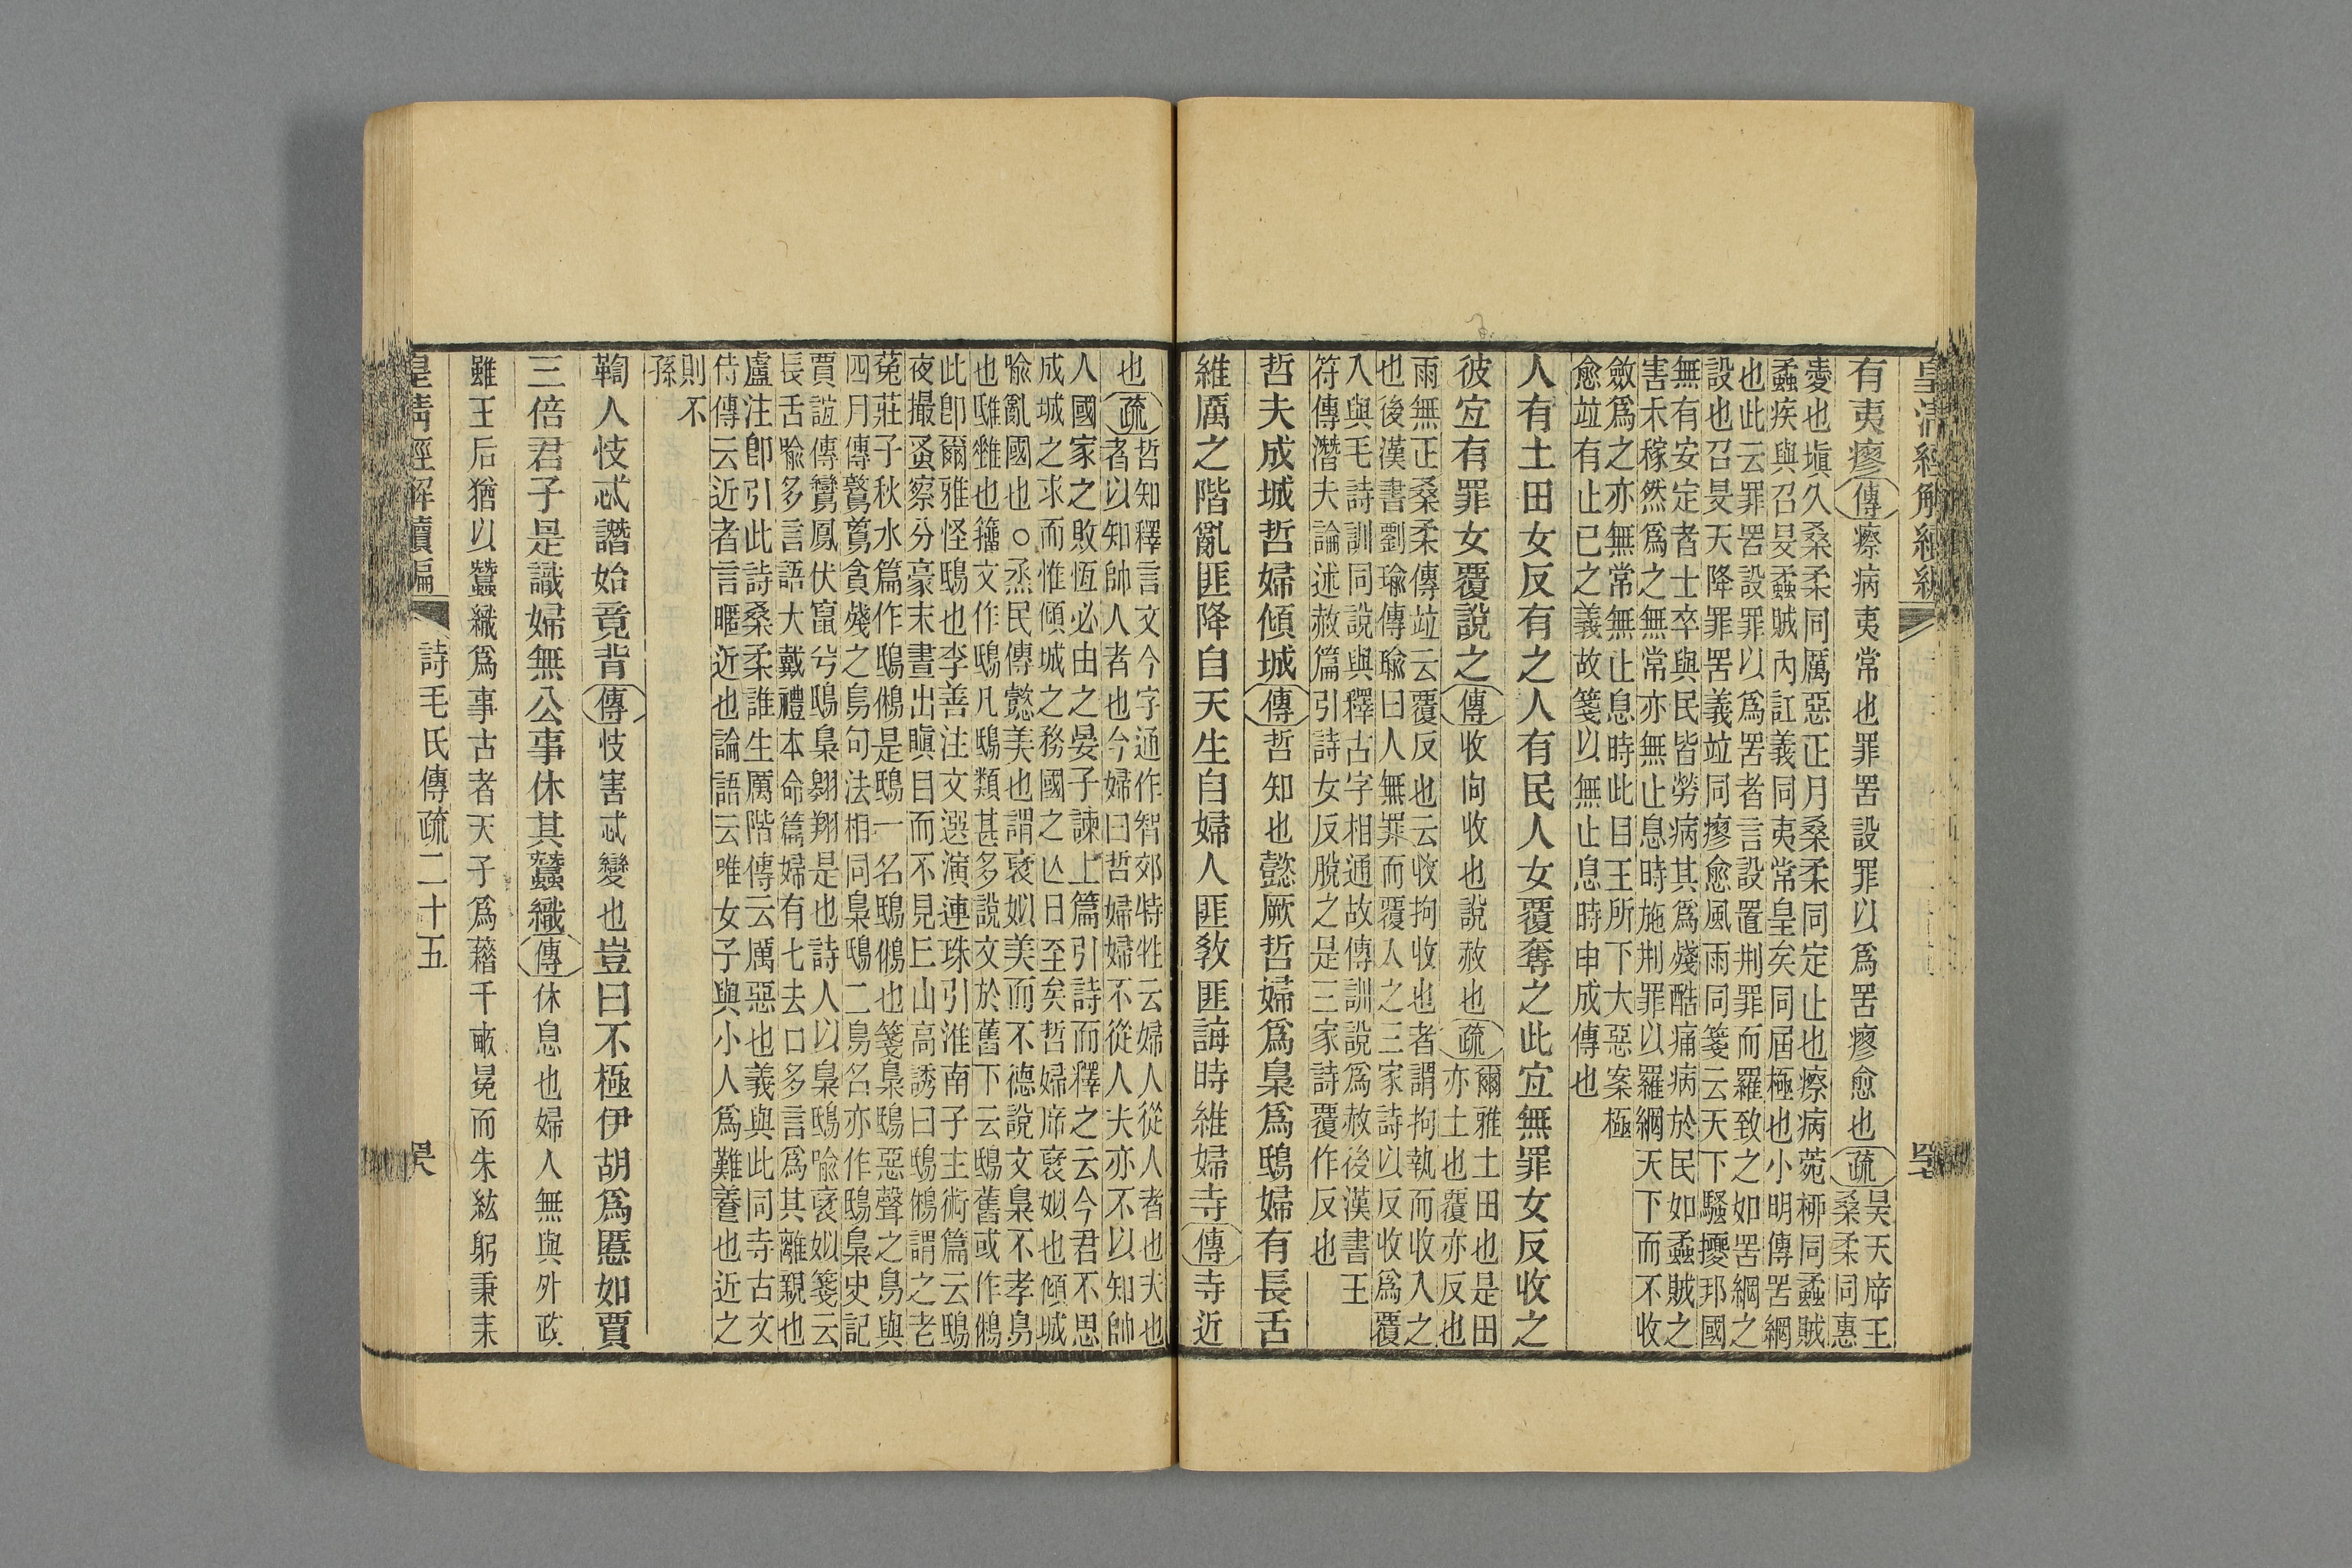 皇清經解續編
有夷瘳傳瘵病夷常也罪罟設罪以爲罟瘳愈也疏
昊天席王
桑柔同惠
愛也塡久桑柔同厲惡正月桑柔同定止也瘵病菀柳同蟊賊
蟊疾與召旻蟊賊內訌義同夷常皇矣同屆極也小明傳罟網
也此云罪罟設罪以爲罟者言設置刑罪而羅致之如罟網之
設也召旻天降罪罟義竝同瘳愈風雨同箋云天下騷擾邦國
無有安定者士卒與民皆勞病其爲殘酷痛病於民如蟊賊之
害禾稼然爲之無常亦無止息時施刑罪以羅網天下而不收
斂爲之亦無常無止息時此目王所下大惡案極
愈竝有止已之義故箋以無止息時申成傳也
人有土田女反有之人有民人女覆奪之此宜無罪女反收之
彼宜有罪女覆說之傳收拘收也說赦也疏
爾雅土田也是田
亦土也覆亦反也
雨無正桑柔傳竝云覆反也云收拘收也者謂拘執而收人之
也後漢書劉瑜傳瑜曰人無罪而覆入之三家詩以反收爲覆
入與毛詩訓同說與釋古字相通故傳訓說爲赦後漢書王
符傳潛夫論述赦篇引詩女反脫之是三家詩覆作反也
哲夫成城哲婦傾城傳哲知也懿厥哲婦爲梟爲鴟婦有長舌
維厲之階亂匪降自天生自婦人匪敎匪誨時維婦寺傳寺近
也疏
哲知釋言文今字通作智郊特牲云婦人從人者也夫也
者以知帥人者也今婦曰哲婦婦不從人夫亦不以知帥
人國家之敗恆必由之晏子諫上篇引詩而釋之云今君不思
成城之求而惟傾城之務國之亾日至矣哲婦席襃姒也傾城
喩亂國也○烝民傳懿美也謂襃姒美而不德說文梟不孝鳥
也鴟雖也籒文作鴟凡鴟類甚多說文於舊下云鴟舊或作鵂
此卽爾雅怪鴟也李善注文選演連珠引淮南子主術篇云鴟
夜撮蚤察分豪末晝出瞋目而不見丘山高誘曰鴟鵂謂之老
菟莊子秋水篇作鴟鵂是鴟一名鴟鵂也箋梟鴟惡聲之鳥與
四月傳鷻鳶貪殘之鳥句法相同梟鴟二鳥名亦作鴟梟史記
賈誼傳鸞鳳伏竄兮鴟梟翱翔是也詩人以梟鴟喩襃姒箋云
長舌喩多言語大戴禮本命篇婦有七去口多言爲其離親也
盧注卽引此詩桑柔誰生厲階傳云厲惡也義與此同寺古文
侍傳云近者言暱近也論語云唯女子與小人爲難養也近之
則不
孫
鞫人忮忒譖始竟背傳忮害忒變也豈曰不極伊胡爲慝如賈
三倍君子是識婦無公事休其蠶織傳休息也婦人無與外政
雖王后猶以蠶織爲事古者天子爲藉千畝冕而朱紘躬秉耒
皇淸經解續編 詩毛氏傳疏二十五